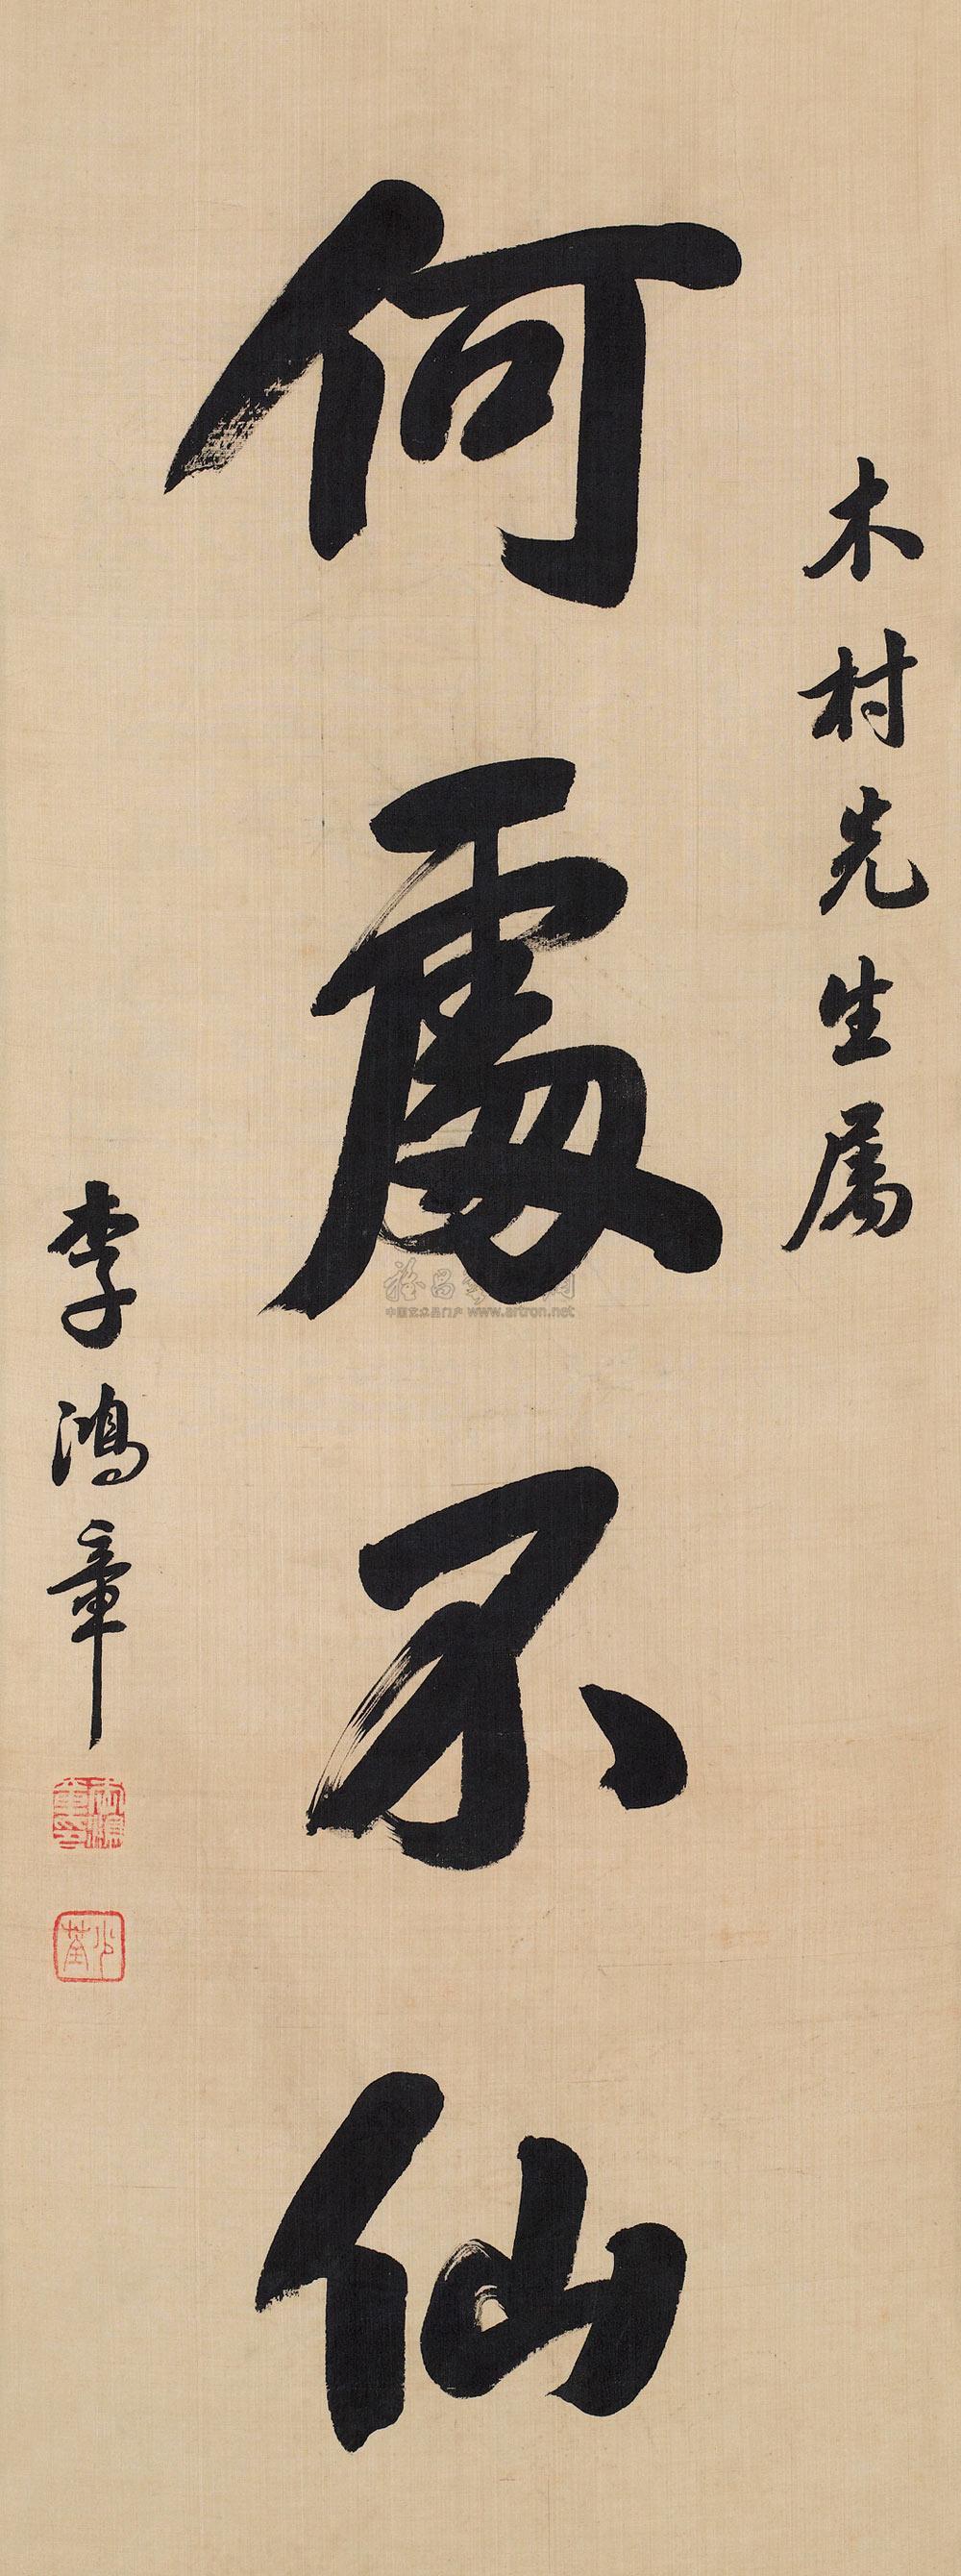 木村先生属
何處不仙
李鴻章
中国艺术品门户 www.artron.net